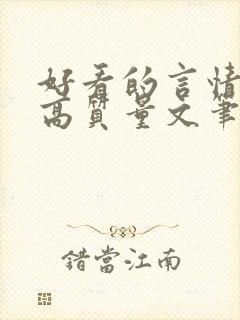 好看的言情
高質量文筆
錯當江南